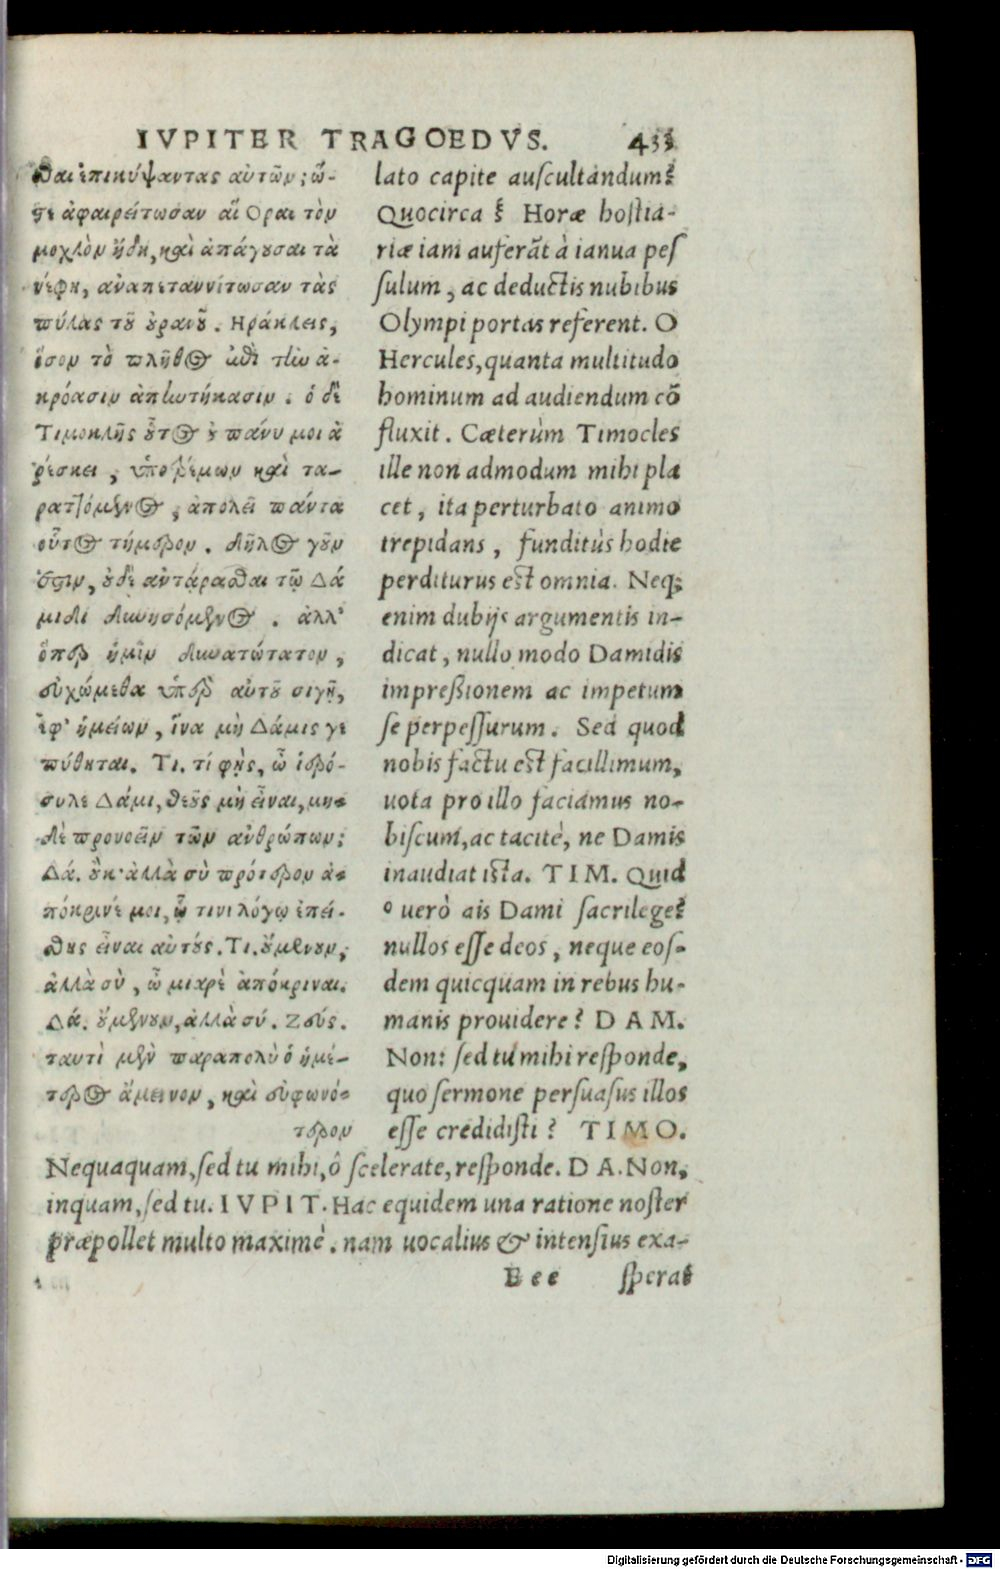 IVPITER TRAGOEDVS. 433
σθαι ἐπικύψαντας αὐτῶν; ὥ-
στε ἀφαιρείτωσαν αἱ Ὁραι τὸν
μοχλὸν ἤδη, καὶ ἀπάγουσαι τὰ
νέφη, ἀναπεταννύτωσαν τὰς
πύλας τοῦ οὐρανοῦ. Ηράκλεις,
ὅσον τὸ πλῆθος ἐπὶ τὴν ἀ-
κρόασιν ἀπηντήκασιν. ὁ δὲ
Τιμοκλῆς οὗτος οὐ πάνυ μοι ἀ
ρέσκει, ὑποτρέμων καὶ τα-
ραττόμενος, ἀπολεῖ πάντα
οὗτος τήμερον. δῆλος γοῦν
ἐστιν, οὐδὲ ἀντάρασθαι τῷ Δά
μιδι δυνησόμενος. ἀλλ'
ὅπερ ἡμῖν δυνατώτατον,
εὐχώμεθα ὑπὲρ αὐτοῦ σιγῇ,
ἐφ' ἡμείων, ἵνα μὴ Δάμις γε
πύθηται. Τι. τί φῂς, ὦ ἱερό-
συλε Δάμι, θεοὺς μὴ εἶναι, μη-
δὲ προνοεῖν τῶν ἀνθρώπων;
Δά. οὔκ· ἀλλὰ σὺ πρότερον ἀ-
πόκριναί μοι, ᾧ τινι λόγῳ ἐπεί-
σθης εἶναι αὐτούς. Τι. οὔμενουν,
ἀλλὰ σὺ, ὦ μιαρὲ ἀπόκριναι.
Δά. οὔμενουν, ἀλλὰ σύ. Ζεύς.
ταυτὶ μὲν παραπολὺ ὁ ἡμέ-
τερος ἄμεινον, καὶ εὐφωνό-
τερον
lato capite auſcultandum?
Quocirca Horæ hoſtia-
riæ iam auferãt à ianua peſ
ſulum, ac deductis nubibus
Olympi portas referent. O
Hercules, quanta multitudo
hominum ad audiendum cõ
fluxit. Cæterùm Timocles
ille non admodum mihi pla
cet, ita perturbato animo
trepidans, funditùs hodie
perditurus est omnia. Neq;
enim dubijs argumentis in-
dicat, nullo modo Damidis
impreßionem ac impetum
ſe perpeſſurum. Sed quod
nobis factu est facillimum,
uota pro illo faciamus no-
biſcum, ac tacitè, ne Damis
inaudiat ista. TIM. Quid
uerò ais Dami ſacrilege?
nullos eſſe deos, neque eoſ-
dem quicquam in rebus hu-
manis prouidere? DAM.
Non: ſed tu mihi reſponde,
quo ſermone perſuaſus illos
eſſe credidiſti? TIMO.
Nequaquam, ſed tu mihi, ô ſcelerate, reſponde. DA. Non,
inquam, ſed tu. IVPIT. Hac equidem una ratione noſter
præpollet multo maximè. nam uocalius & intenſius exa-
Eee ſperat
Digitalisierung gefördert durch die Deutsche Forschungsgemeinschaft - DFG